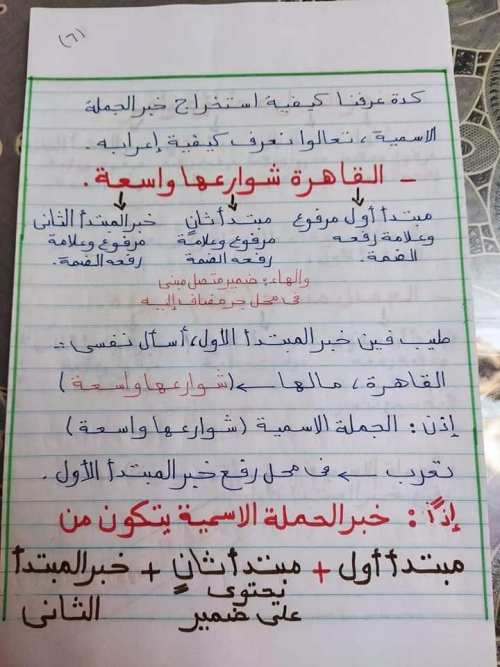 (٦)
كدة عرفنا كيفية استخراج خبر الجملة
الاسمية، تعالوا نعرف كيفية إعرابه.
- القاهرة شوارعها واسعة.
مبتدأ أول مرفوع وعلامة رفعه الضمة.
مبتدأ ثانٍ مرفوع وعلامة رفعه الضمة
خبر المبتدأ الثانى مرفوع وعلامة رفعه الضمة.
والهاء: ضمير متصل مبنى
فى محل جر مضاف إليه
طيب فين خبر المبتدأ الأول، أسأل نفسى :-
القاهرة، مالها ← (شوارعها واسعة)
إذن: الجملة الاسمية (شوارعها واسعة)
تعرب ← فى محل رفع خبر المبتدأ الأول.
إذاً: خبر الجملة الاسمية يتكون من
مبتدأ أول + مبتدأ ثانٍ + خبر المبتدأ
يحتوى
على ضمير الثانى